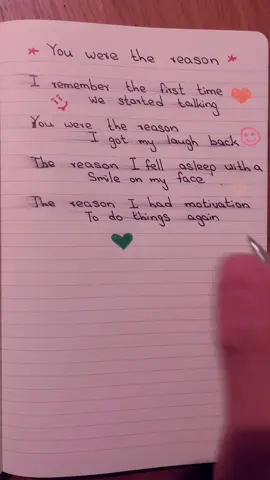 You were the reason
I remember the first time
we started talking
You were the reason
I got my laugh back
The reason I fell asleep with a
Smile on my face
The reason I had motivation
To do things again